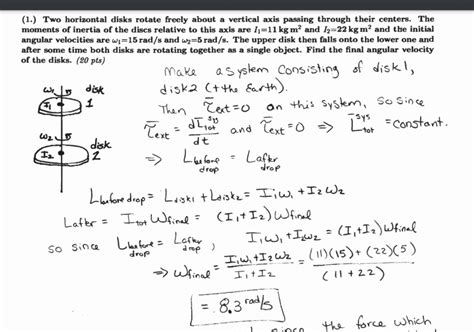 (1.) Two horizontal disks rotate freely about a vertical axis passing through their centers. The
moments of inertia of the discs relative to this axis are I₁=11 kg m² and I₂=22 kg m² and the initial
angular velocities are ω₁=15 rad/s and ω₂=5 rad/s. The upper disk then falls onto the lower one and
after some time both disks are rotating together as a single object. Find the final angular velocity
of the disks. (20 pts)
Make a system consisting of disk 1,
disk 2 (+ the Earth).
ω₁ disk
I₁ 1
Then τ_ext = 0 on this system, so since
τ_ext = dL_tot^sys/dt and τ_ext = 0 ⇒ L_tot^sys = constant.
ω₂ disk
I₂ 2
⇒ L_before drop = L_after drop
L_before drop = L_disk1 + L_disk2 = I₁ω₁ + I₂ω₂
L_after = I_tot ω_final = (I₁+I₂) ω_final
so since L_before drop = L_after drop, I₁ω₁ + I₂ω₂ = (I₁+I₂) ω_final
⇒ ω_final = (I₁ω₁ + I₂ω₂)/(I₁+I₂) = ((11)(15) + (22)(5))/(11+22)
= 8.3 rad/s
the force which